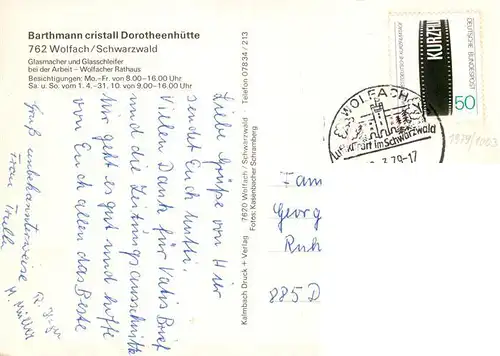 Barthmann cristall Dorotheenhütte
762 Wolfach/Schwarzwald
Glasmacher und Glasschleifer
bei der Arbeit – Wolfacher Rathaus
Besichtigungen: Mo.-Fr. von 8.00-16.00 Uhr
Sa. u. So. vom 1. 4.-31. 10. von 9.00-16.00 Uhr
Telefon 07834 / 213
7620 Wolfach / Schwarzwald
Kalmbach Druck + Verlag
Fotos: Kasenbacher Schramberg
Liebe Grüße von Hier
sendet Euch Mutti.
Vielen Dank für Vatis Brief
und die Zeitungsausschnitte
Mir geht es gut und hoffe
von Euch allen das Beste
Gruß unbekannterweise
Frau
H. Müller
R.
WOLFACH
Luftkurort im Schwarzwald
3.79-17
KURZFILM
DEUTSCHE BUNDESPOST
50
1979/1003
Fam
Georg
Ruh
885 D